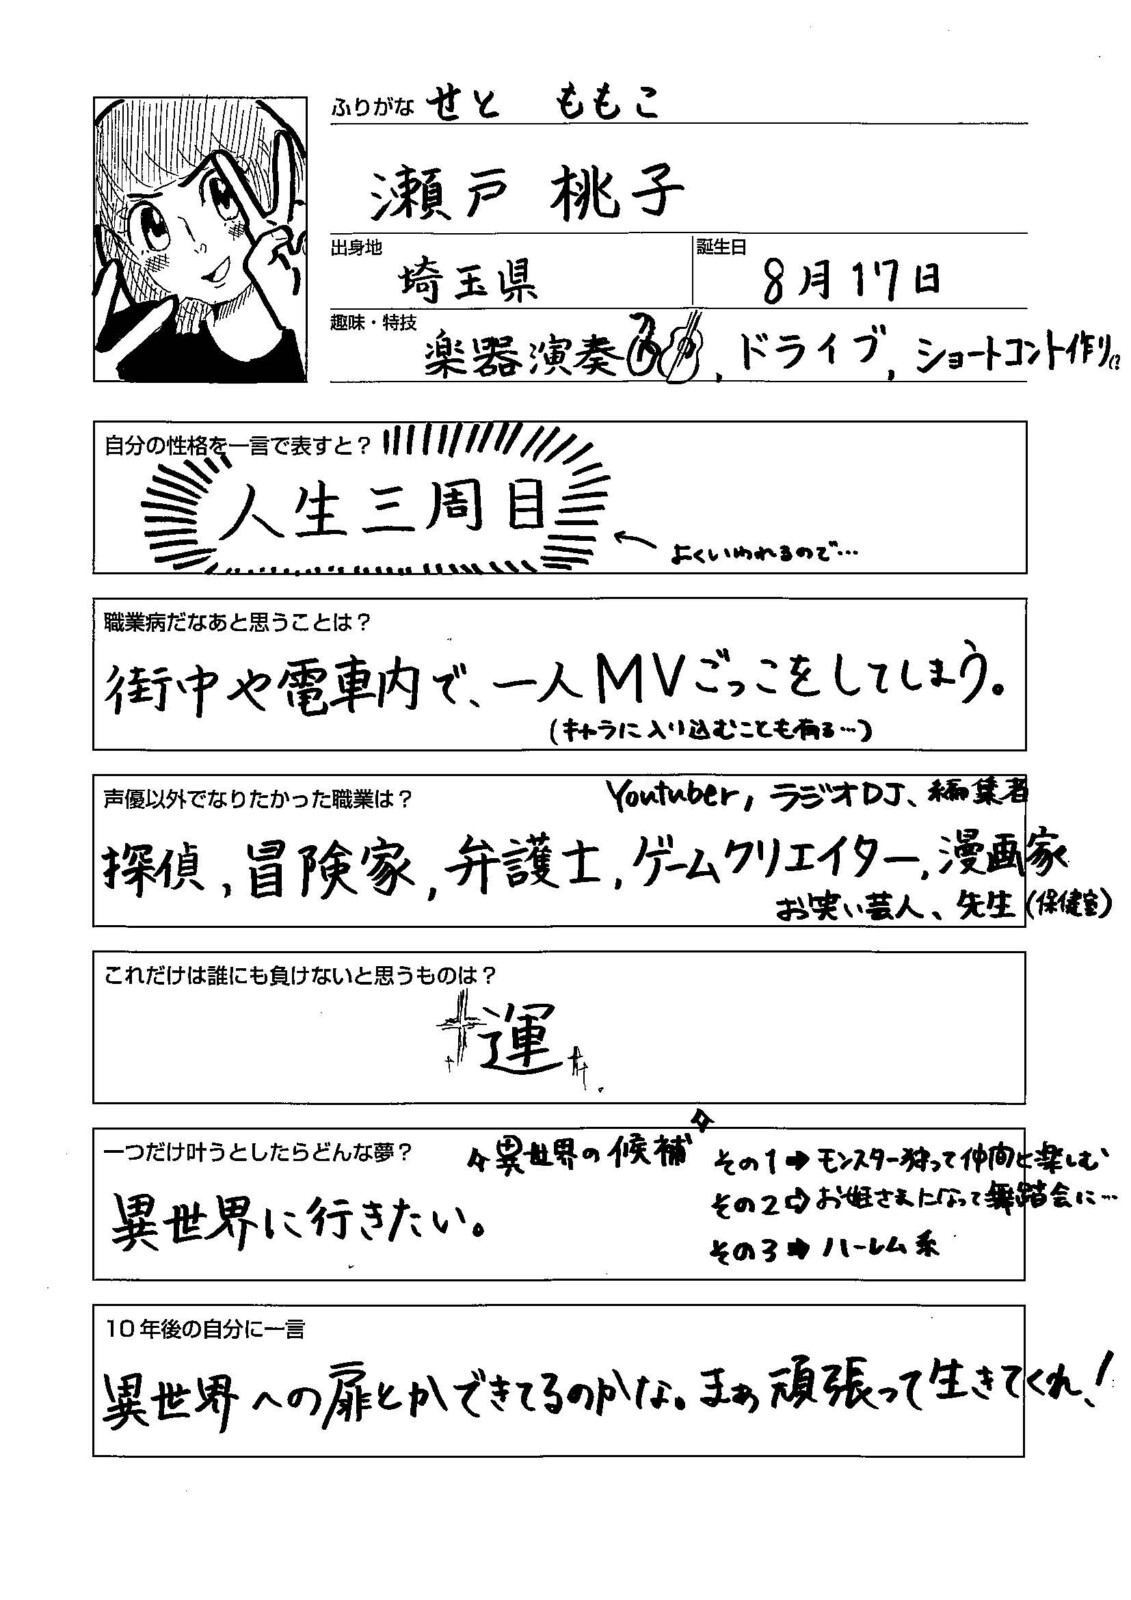 ふりがな せと ももこ
瀬戸 桃子
出身地 埼玉県
誕生日 8月17日
趣味・特技 楽器演奏, ドライブ, ショートコント作り!?
自分の性格を一言で表すと?
人生三周目
よくいわれるので…
職業病だなあと思うことは?
街中や電車内で、一人MVごっこをしてしまう。
(キャラに入り込むことも有る…)
声優以外でなりたかった職業は?
Youtuber, ラジオDJ、編集者
探偵, 冒険家, 弁護士, ゲームクリエイター, 漫画家
お笑い芸人、先生(保健室)
これだけは誰にも負けないと思うものは?
運
一つだけ叶うとしたらどんな夢?
異世界に行きたい。
異世界の候補
その1→モンスター狩って仲間と楽しむ
その2⇨お姫さまになって舞踏会に…
その3→ハーレム系
10年後の自分に一言
異世界への扉とかできてるのかな。まぁ頑張って生きてくれ!